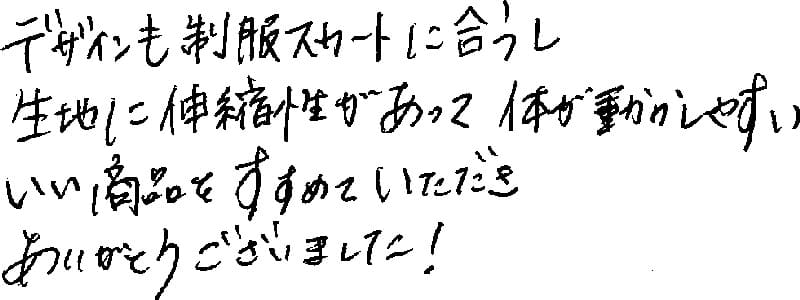 デザインも制服スカートに合うし
生地に伸縮性があって体が動かしやすい
いい商品をすすめていただき
ありがとうございました!